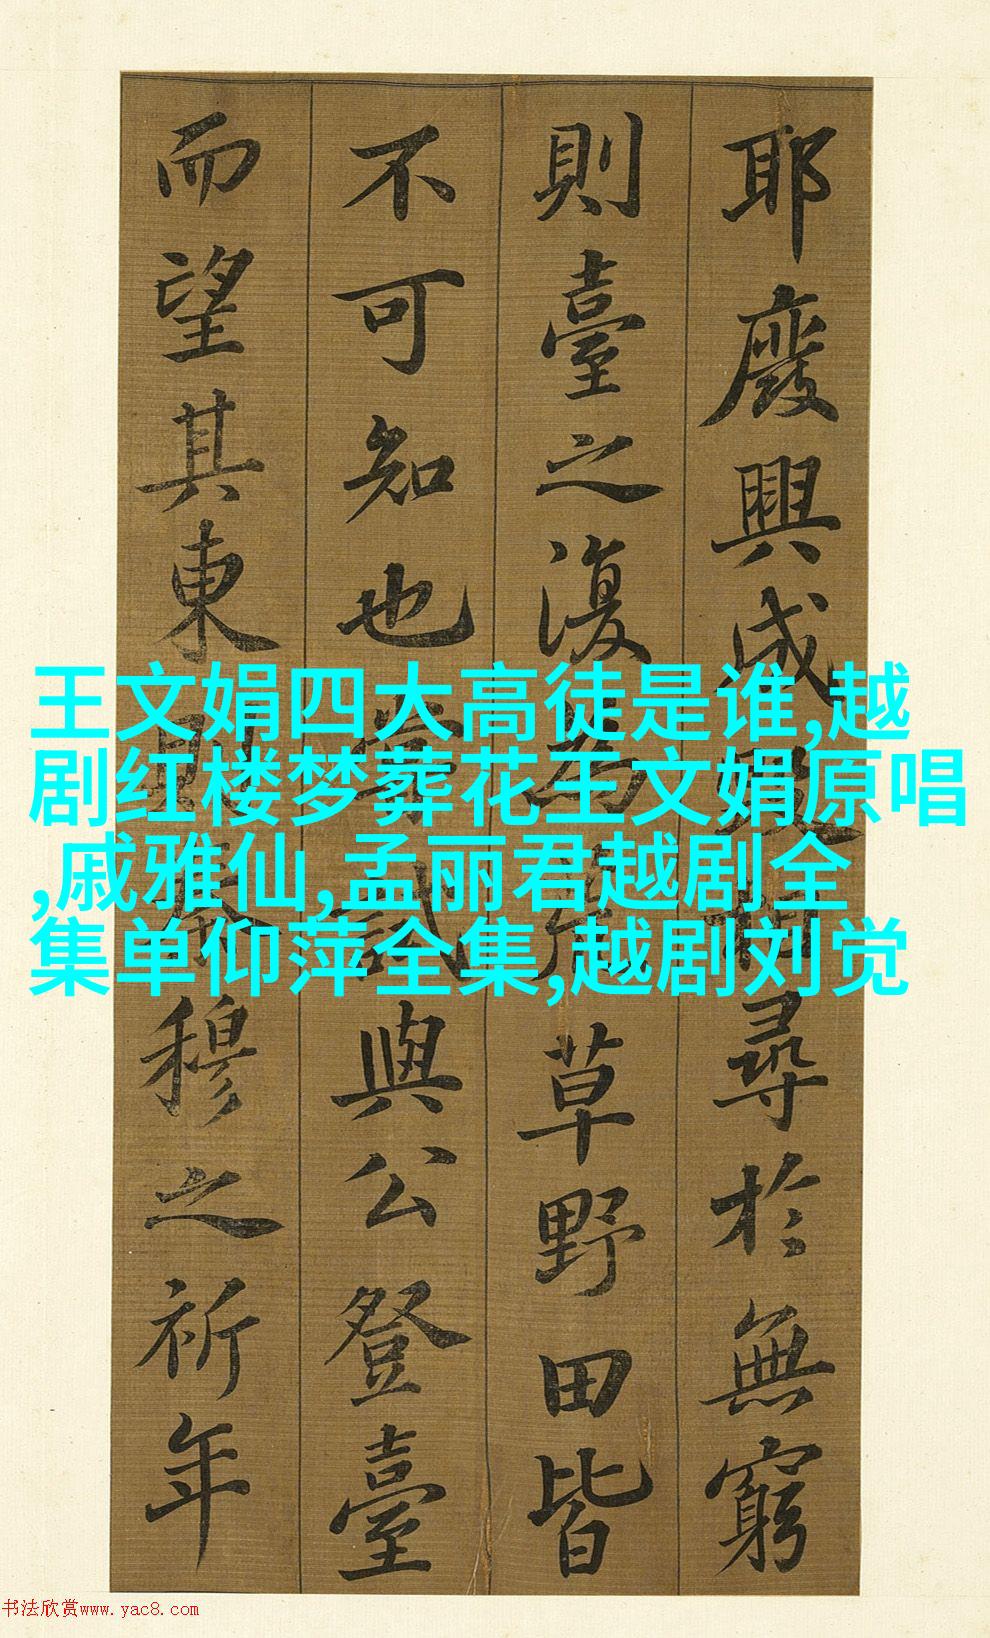 耶廢興成毀相尋於無窮
則臺之復為荒草野田皆
不可知也嘗試與公登臺
而望其東則秦穆之祈年
王文娟四大高徒是谁,越
剧红楼梦葬花王文娟原唱
,戚雅仙,孟丽君越剧全
集单仰萍全集,越剧刘觉
书法欣赏www.yac8.com